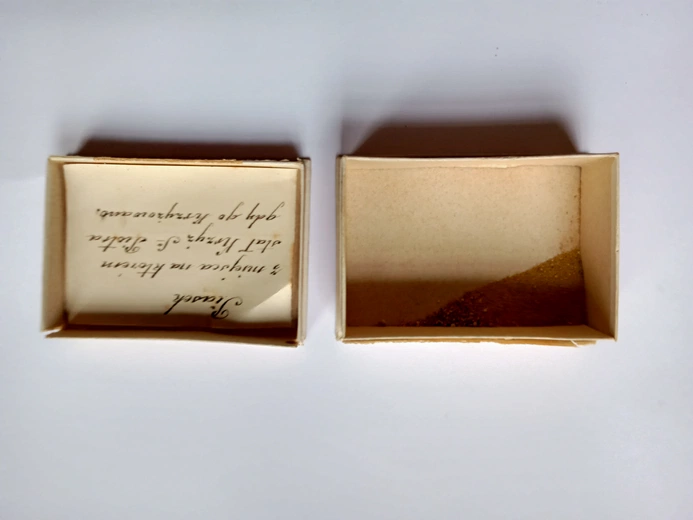 Piasek
z miejsca na którem
stał Krzyż Sº Piotra
gdy go Krzyżowano.